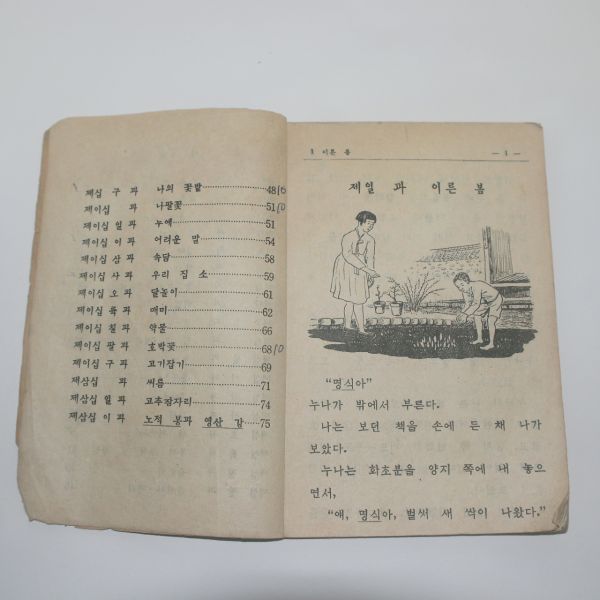 제십 구 과 나의 꽃밭 48
제이십 과 나팔꽃 51
제이십 일 과 누에 51
제이십 이 과 어려운 말 54
제이십 삼 과 속담 58
제이십 사 과 우리 집 소 59
제이십 오 과 달놀이 61
제이십 륙 과 매미 62
제이십 칠 과 약물 66
제이십 팔 과 호박꽃 68
제이십 구 과 고기잡기 69
제삼십 과 씨름 71
제삼십 일 과 고추잠자리 74
제삼십 이 과 노적 봉과 영산 강 75
이른 봄
제일 과 이른 봄
“명식아”
누나가 밖에서 부른다.
나는 보던 책을 손에 든 채 나가
보았다.
누나는 화초분을 양지 쪽에 내 놓으
면서,
“얘, 명식아, 벌써 새 싹이 나왔다.”